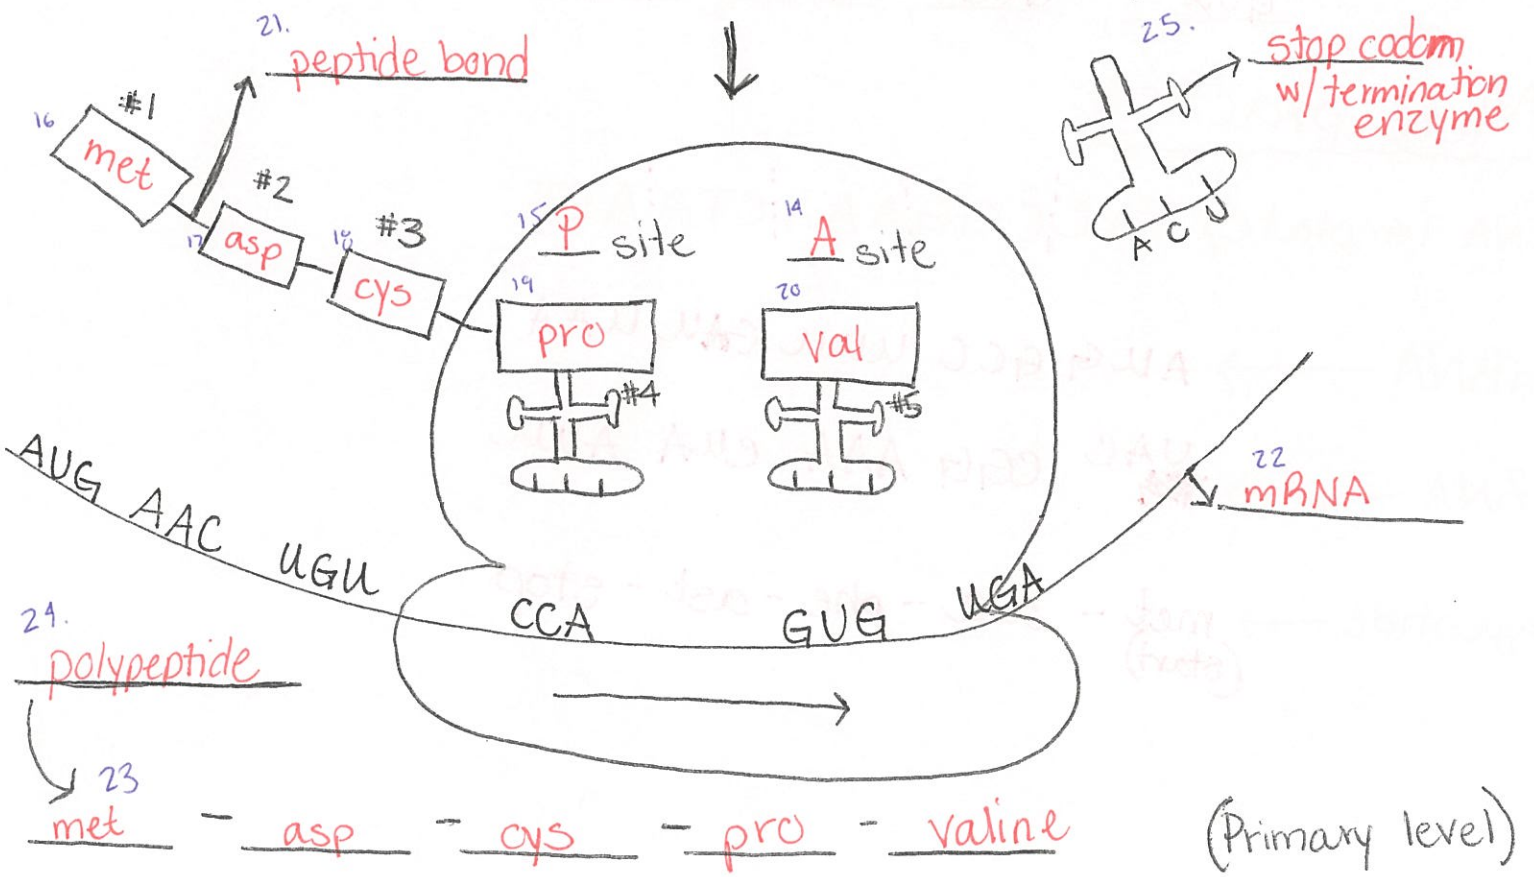 21.
peptide bond
25.
stop codon
w/ termination
enzyme
A C U
16
#1
met
#2
17
asp
18
#3
cys
15
P site
14
A site
19
pro
#4
20
val
#5
AUG AAC UGU CCA GUG UGA
22
mRNA
24.
polypeptide
23
met - asp - cys - pro - valine
(Primary level)